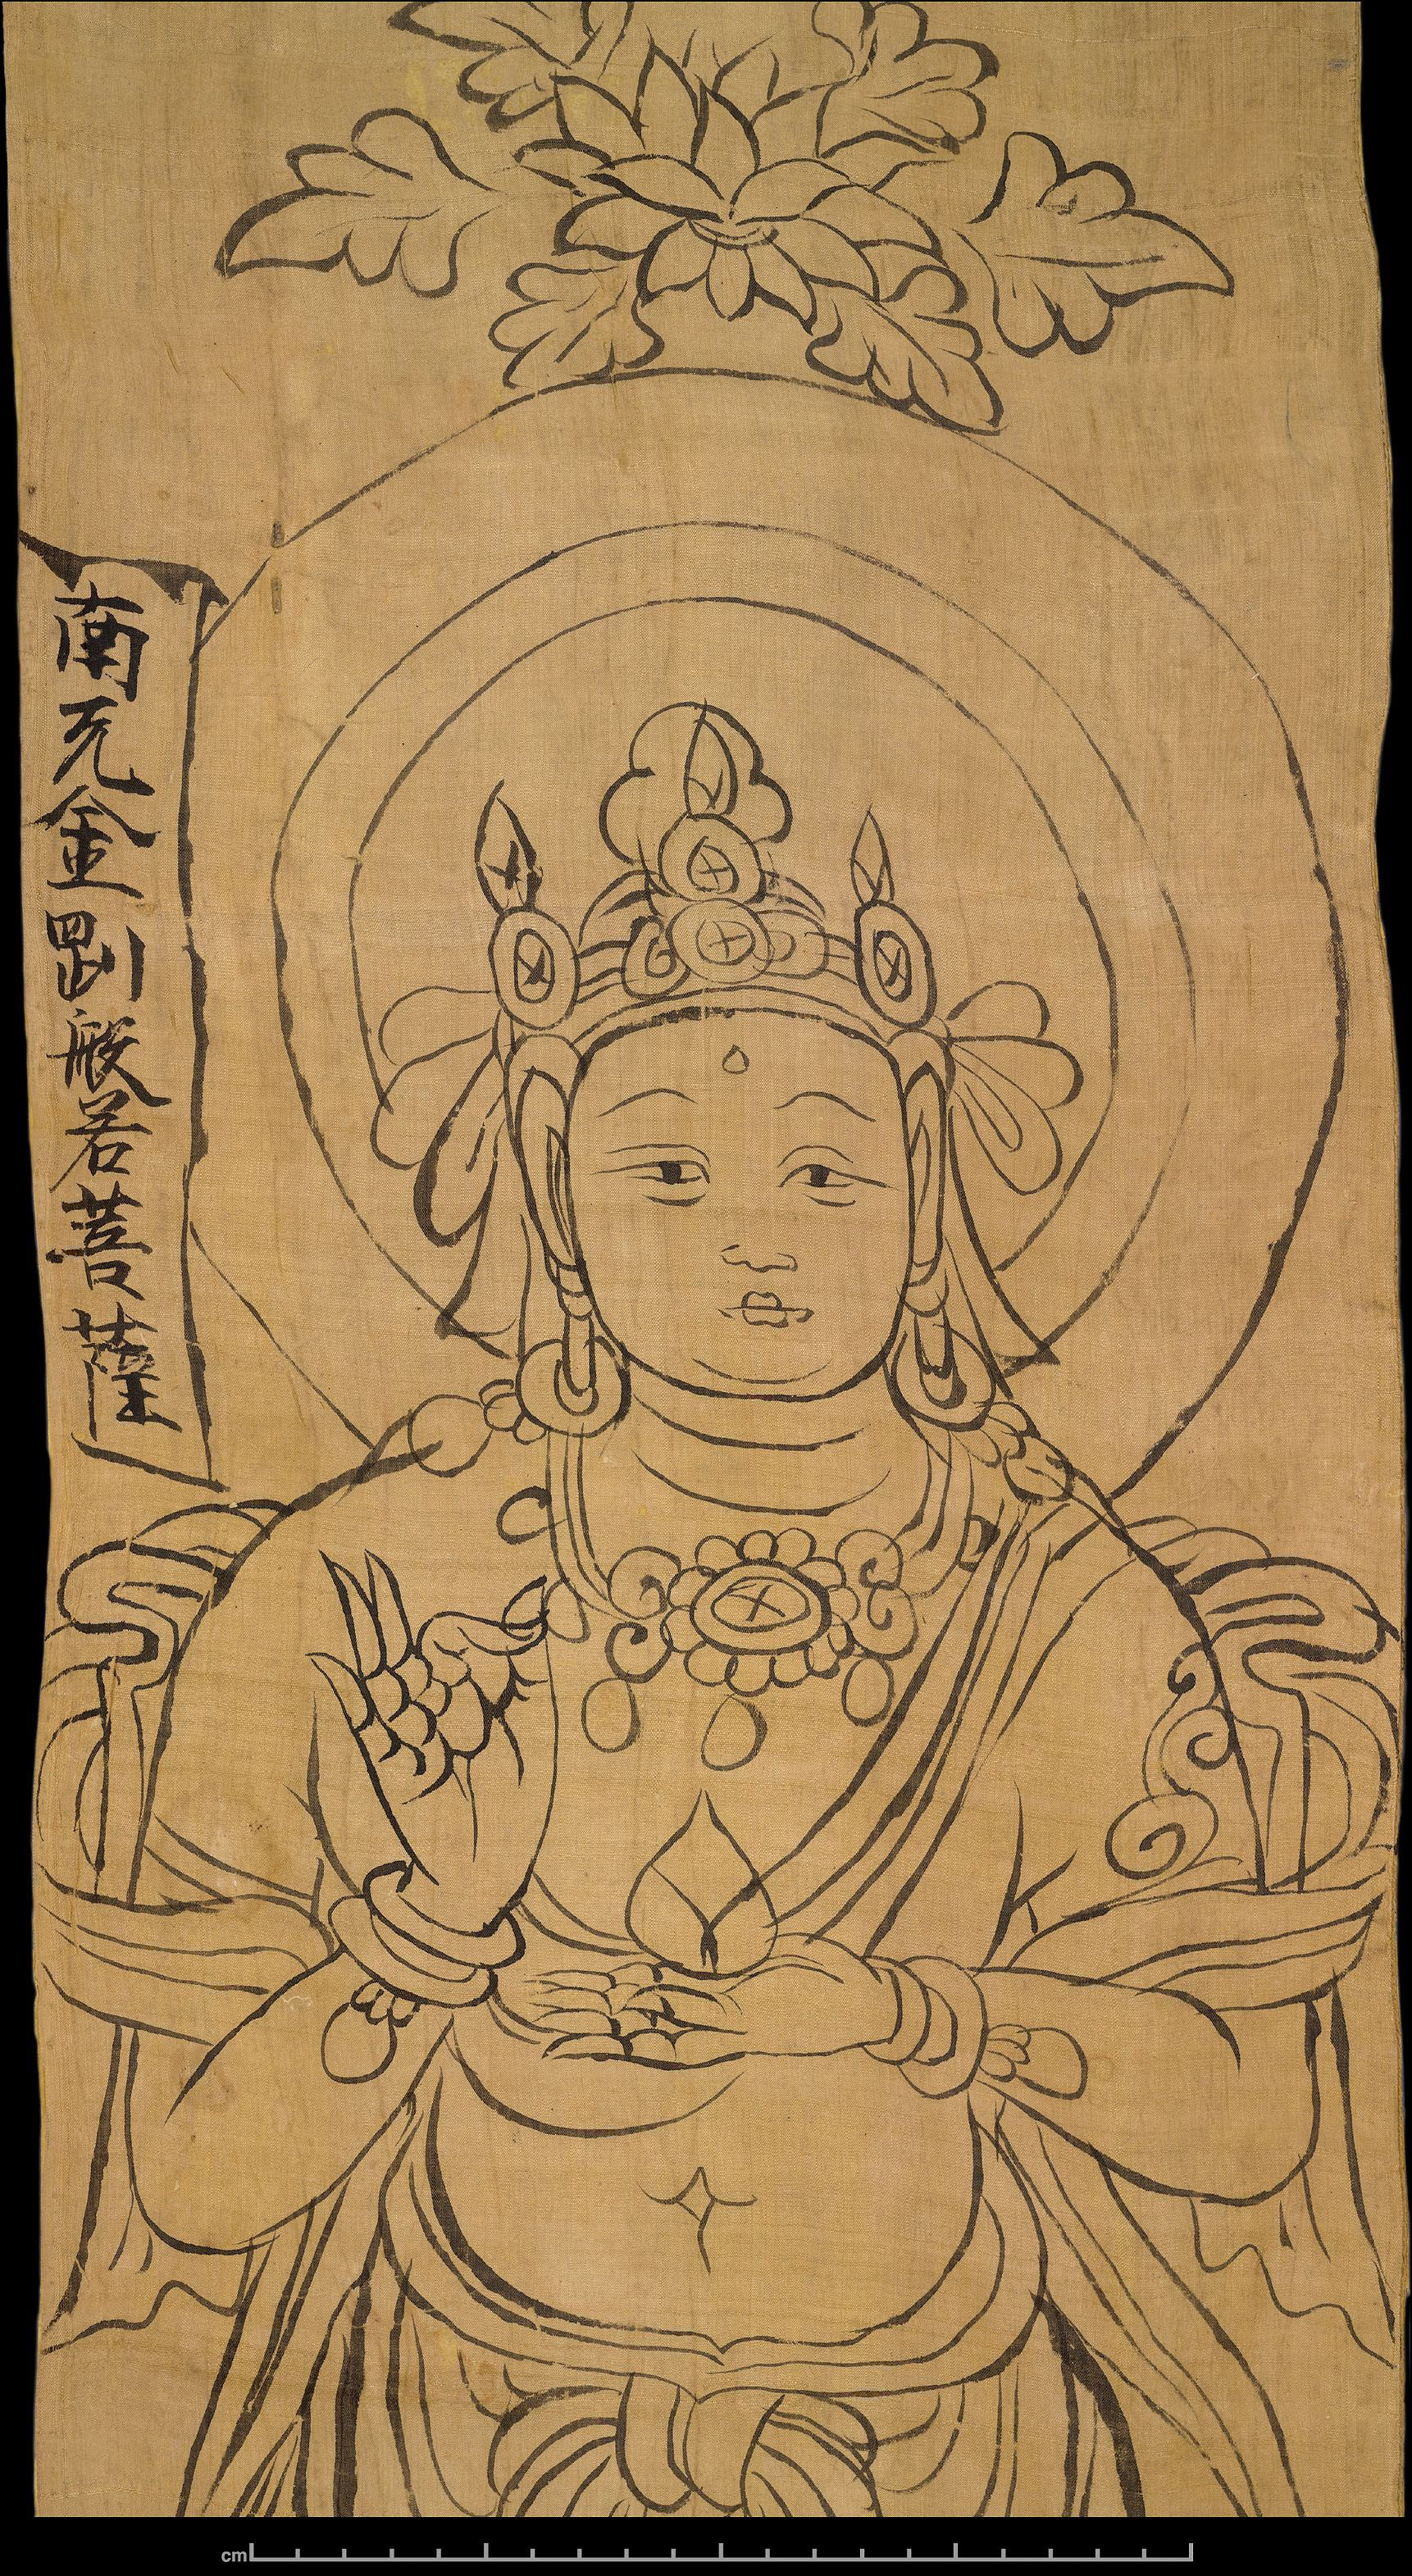 南无金剛般若菩薩
cm